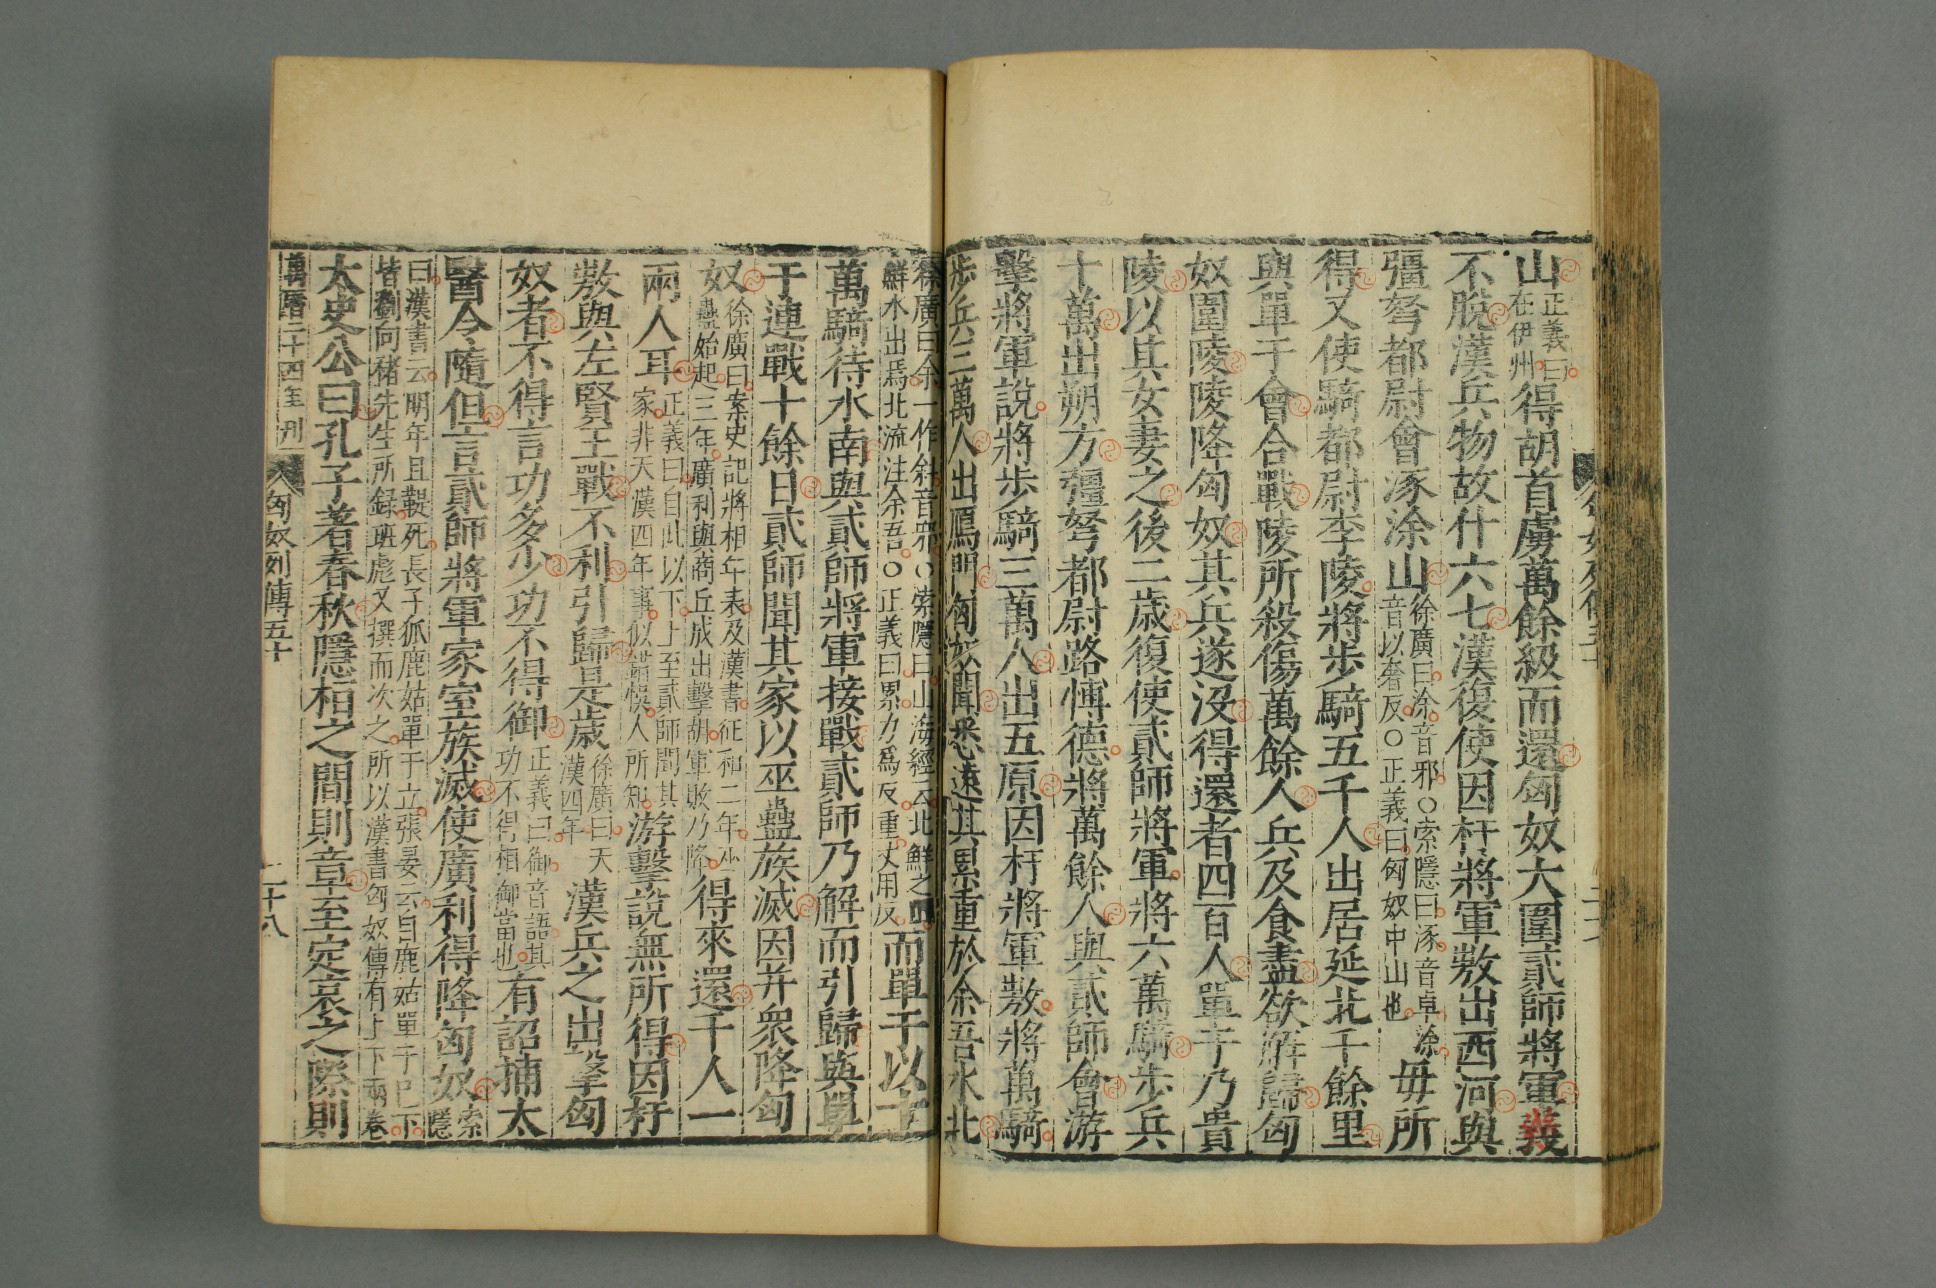 山正義曰在伊州得胡首虜萬餘級而還匈奴大圍貳師將軍幾
不脫漢兵物故什六七漢復使因杅將軍敖出西河與
彊弩都尉會涿涂山徐廣曰涂音邪○索隱曰涿音卓涂音以奢反○正義曰匈奴中山也毋所
得又使騎都尉李陵將步騎五千人出居延北千餘里
與單于會合戰陵所殺傷萬餘人兵及食盡欲解歸匈
奴圍陵陵降匈奴其兵遂沒得還者四百人單于乃貴
陵以其女妻之後二歲復使貳師將軍將六萬騎步兵
十萬出朔方彊弩都尉路愽德將萬餘人與貳師會游
擊將軍說將步騎三萬人出五原因杅將軍敖將萬騎
步兵三萬人出鴈門匈奴聞悉遠其累重於余吾水北
徐廣曰余一作斜音邪○索隱曰山海經云北鮮之山鮮水出焉北流注余吾○正義曰累力爲反重丈用反而單于以十
萬騎待水南與貳師將軍接戰貳師乃解而引歸與單
于連戰十餘日貳師聞其家以巫蠱族滅因并衆降匈
奴徐廣曰案史記將相年表及漢書征和二年巫蠱始起三年廣利與商丘成出擊胡軍敗乃降得來還千人一
兩人耳正義曰自此以下上至貳師聞其家非天漢四年事似錯悞人所知游擊說無所得因杅
敖與左賢王戰不利引歸是歲徐廣曰天漢四年漢兵之出擊匈
奴者不得言功多少功不得御正義曰御音語其功不得相御當也有詔捕太
醫令隨但言貳師將軍家室族滅使廣利得降匈奴索隱
曰漢書云明年且鞮死長子狐鹿姑單于立張晏云自鹿姑單于已下皆劉向褚先生所錄班彪又撰而次之所以漢書匈奴傳有上下兩卷
太史公曰孔子著春秋隱桓之間則章至定哀之際則
萬曆二十四年刊
匈奴列傳五十
二十八